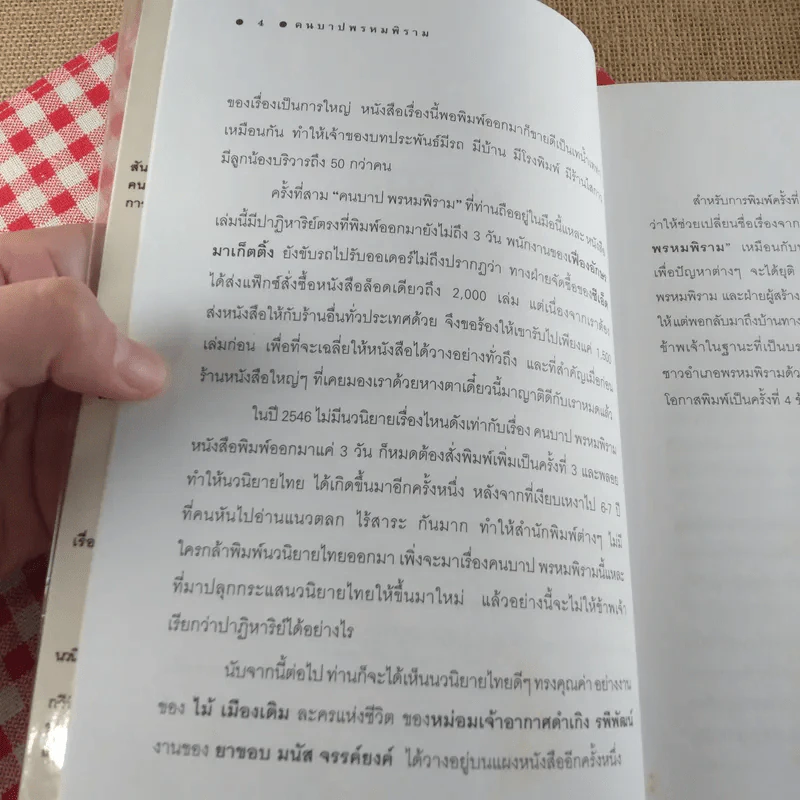 ● 4 ● คนบาปพรหมพิราม
ของเรื่องเป็นการใหญ่ หนังสือเรื่องนี้พอพิมพ์ออกมาก็ขายดีเป็นเทน้ำเทท่า
เหมือนกัน ทำให้เจ้าของบทประพันธ์มีรถ มีบ้าน มีโรงพิมพ์
มีลูกน้องบริวารถึง 50 กว่าคน
ครั้งที่สาม “คนบาป พรหมพิราม” ที่ท่านถืออยู่ในมือนี้แหละ หนังสือ
เล่มนี้มีปาฏิหาริย์ตรงที่พิมพ์ออกมายังไม่ถึง 3 วัน พนักงานของเฟื่องอักษร
มาเก็ตติ้ง ยังขับรถไปรับออเดอร์ไม่ถึงปรากฏว่า ทางฝ่ายจัดซื้อของซีเอ็ด
ได้ส่งแฟ็กซ์สั่งซื้อหนังสือล็อตเดียวถึง 2,000 เล่ม แต่เนื่องจากเราต้อง
ส่งหนังสือให้กับร้านอื่นทั่วประเทศด้วย จึงขอร้องให้เขารับไปเพียงแค่ 1,500
เล่มก่อน เพื่อที่จะเฉลี่ยให้หนังสือได้วางอย่างทั่วถึง และที่สำคัญเมื่อก่อน
ร้านหนังสือใหญ่ๆ ที่เคยมองเราด้วยหางตาเดี๋ยวนี้มาญาติดีกับเราหมดแล้ว
ในปี 2546 ไม่มีนวนิยายเรื่องไหนดังเท่ากับเรื่อง คนบาป พรหมพิราม
หนังสือพิมพ์ออกมาแค่ 3 วัน ก็หมดต้องสั่งพิมพ์เพิ่มเป็นครั้งที่ 3 และพลอย
ทำให้นวนิยายไทย ได้เกิดขึ้นมาอีกครั้งหนึ่ง หลังจากที่เงียบเหงาไป 6-7 ปี
ที่คนหันไปอ่านแนวตลก ไร้สาระ กันมาก ทำให้สำนักพิมพ์ต่างๆ ไม่มี
ใครกล้าพิมพ์นวนิยายไทยออกมา เพิ่งจะมาเรื่องคนบาป พรหมพิรามนี้แหละ
ที่มาปลุกกระแสนวนิยายไทยให้ขึ้นมาใหม่ แล้วอย่างนี้จะไม่ให้ข้าพเจ้า
เรียกว่าปาฏิหาริย์ได้อย่างไร
นับจากนี้ต่อไป ท่านก็จะได้เห็นนวนิยายไทยดีๆ ทรงคุณค่า อย่างงาน
ของ ไม้ เมืองเดิม ละครแห่งชีวิต ของหม่อมเจ้าอากาศดำเกิง รพีพัฒน์
งานของ ยาขอบ มนัส จรรค์ยงค์ ได้วางอยู่บนแผงหนังสืออีกครั้งหนึ่ง
สำหรับการพิมพ์ครั้งที่
ว่าให้ช่วยเปลี่ยนชื่อเรื่องจาก
พรหมพิราม” เหมือนกับ
เพื่อปัญหาต่างๆ จะได้ยุติ
พรหมพิราม และฝ่ายผู้สร้าง
ให้แต่พอกลับมาถึงบ้านทาง
ข้าพเจ้าในฐานะที่เป็นบร
ชาวอำเภอพรหมพิรามด้ว
โอกาสพิมพ์เป็นครั้งที่ 4
สัน
คน
การ
เรื่อ
นวนิ